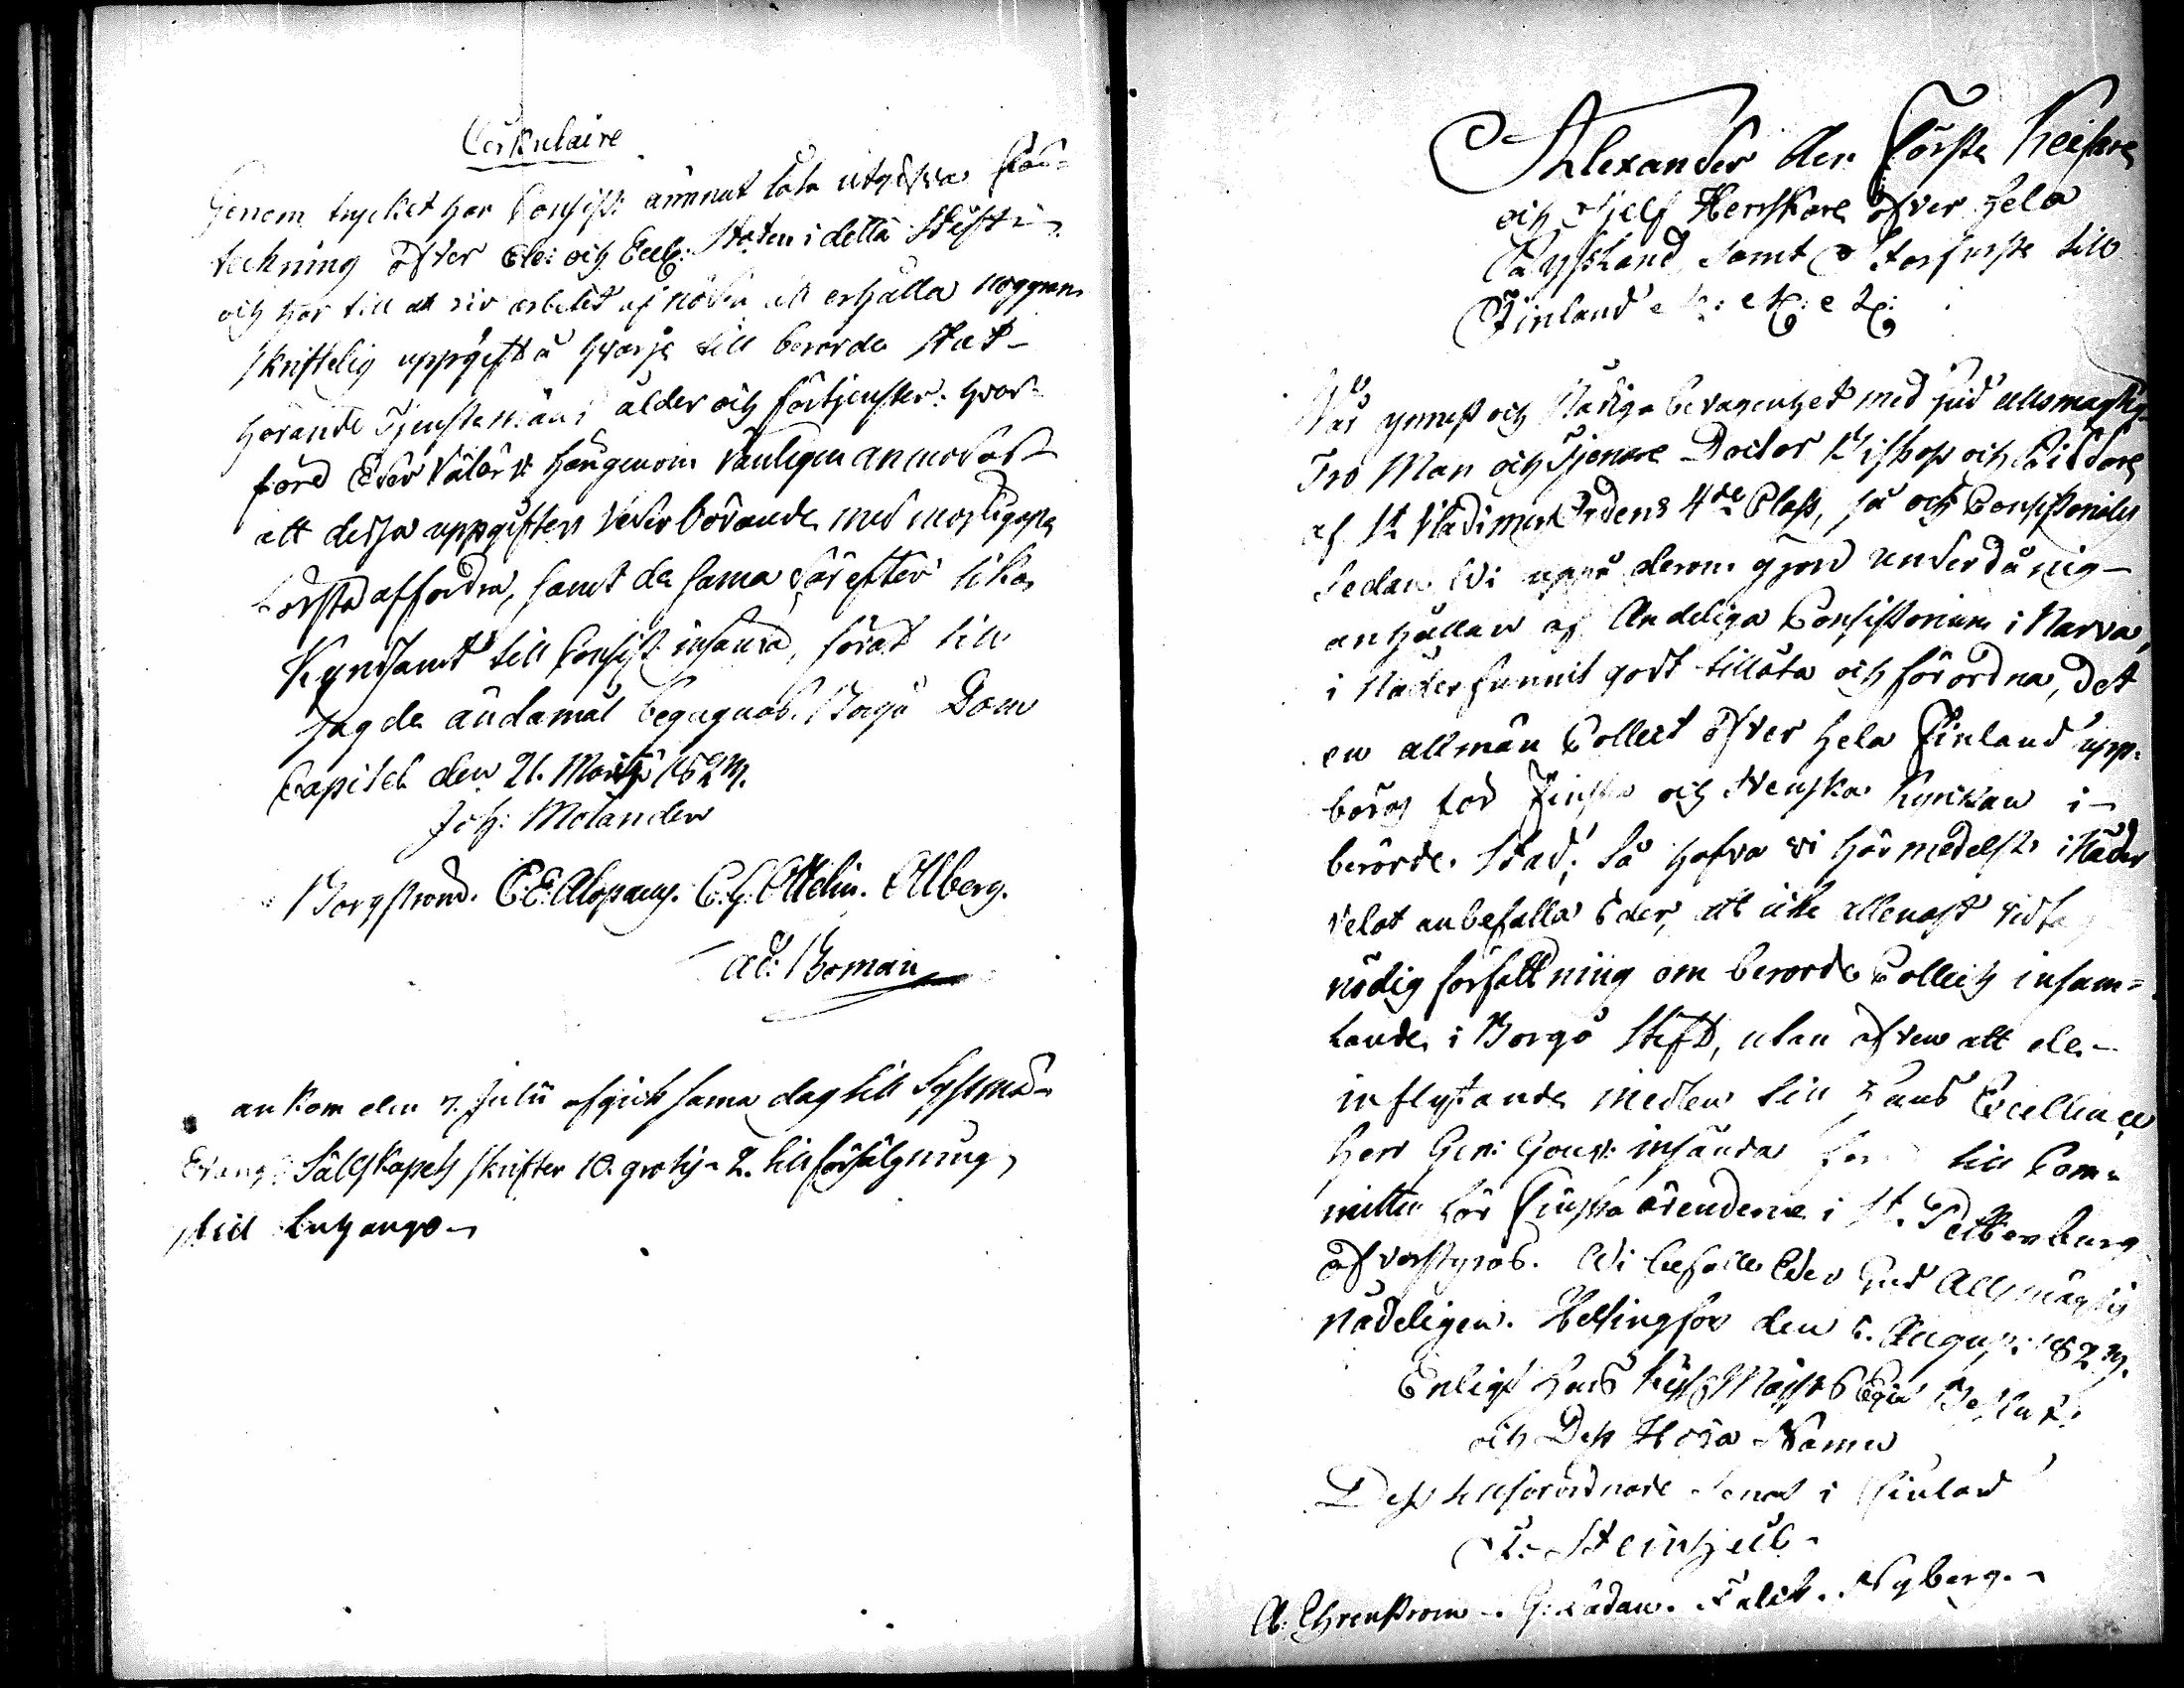 Cirkulaire
Genom trycket har Consist: ämnat låta utgifva för-
tekning öfver Cler: och Eccl: Staten i detta Stift
och har till att sådant arbetet af nöden att erhålla noggran
skriftelig uppgift å hvarje till berörde Stat
hörande Tjensteman's ålder och förtjenster. hvar-
före Eder härigenom vänligen anmodas
att dessa uppgifter vederbörande med möjligaste
första affordra, samt de sama därefter lika
skyndsamt till Consist: insända, för att till
sagde ändamål begagnas. Borgå Dom
Capitel den 21. Martii 1823.
Joh: Molander
Borgström. C: E: Alopaeus. C. G. Ottelin. Ahlberg.
Ad: Boman
ankom den 7. Julii afgick sama dag till Sysmä
Evang: Sällskapets skrifter 10. gratis 2. till försäljning,
till Luhango
Alexander den Förste Keisare
och Sjelf Herrskare öfver hela
Ryssland, samt Storfurste till
Finland etc: etc: etc:
Vår ynnest och Nådiga bevågenhet med Gud Allsmägtig
Tro Man och Tjenare Doctor Biskop och Riddare
af St Vladimers Ordens 4de Class, så och Consistoriales
Sedan Wi uppå derom gjord underdånig
anhållan af Andeliga Consistorium i Narva,
i Nåder funnit godt tillåta och förordna, det
en allmän Collect öfver hela Finland upp-
bäras för Finska och Svenska Kyrkan i
berörde Stad; Så hafva vi härmedelst i Nåder
velat anbefalla Eder, att icke allenast vidtaga
nödig författning om berörde Collects insam-
lande i Borgå Stift, utan äfven att de
inflytande medlen till Hans Excellence
Herr Gen: Gouv: insända för till Com-
mitten för Finska ärenderne i St. Pettersburg
öfverstyras. Wi befalle Eder Gud Allsmägtig
nådeligen. Helsingfors den 5. August: 1823.
Enligt Hans Kejs: Maj:ts Eget Beslut
och Dess Höga Namn
Dess tillförordnade Senat i Finland
R: Steinheil
A: Ehrenström G: Ladau. Falck. Nyberg.